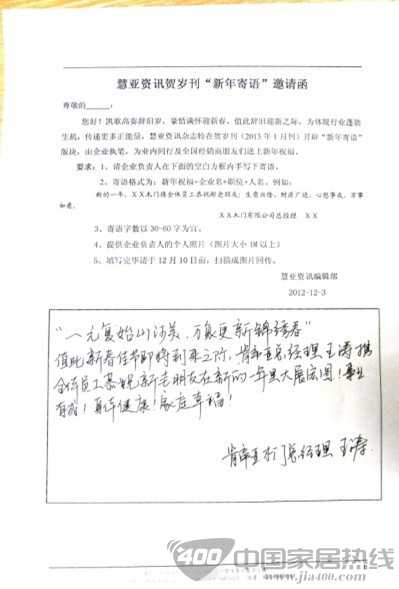 慧亚资讯贺岁刊“新年寄语”邀请函
尊敬的_____:
您好!凯歌高奏辞旧岁,豪情满怀迎新春。值此辞旧迎新之际,为体现行业蓬勃
生机,传递更多正能量,慧亚资讯杂志特在贺岁刊(2013年1月刊)开辟“新年寄语”
版块,由企业执笔,为业内同行及全国经销商朋友们送上新年祝福。
要求:1、请企业负责人在下面的空白方框内手写下寄语。
2、寄语格式为:新年祝福+企业名+职位+人名。例如:
新的一年,XX木门携全体员工恭祝新老朋友:生意兴隆、财源广进、心想事成、万事
如意。
XX木门有限公司总经理 XX
3、寄语字数以30-60字为宜。
4、提供企业负责人的个人照片(图片大小1M以上)
5、填写完毕请于12月10日前,扫描成图片回传。
慧亚资讯编辑部
2012-12-3
“一元复始山河美,万象更新锦绣春”
值此新春佳节即将到来之际,肯帝亚总经理王涛携
全体员工恭祝新老朋友在新的一年里大展宏图!事业
有成!身体健康!家庭幸福!
肯帝亚木门总经理 王涛
400 中国家居热线
www.jia400.com